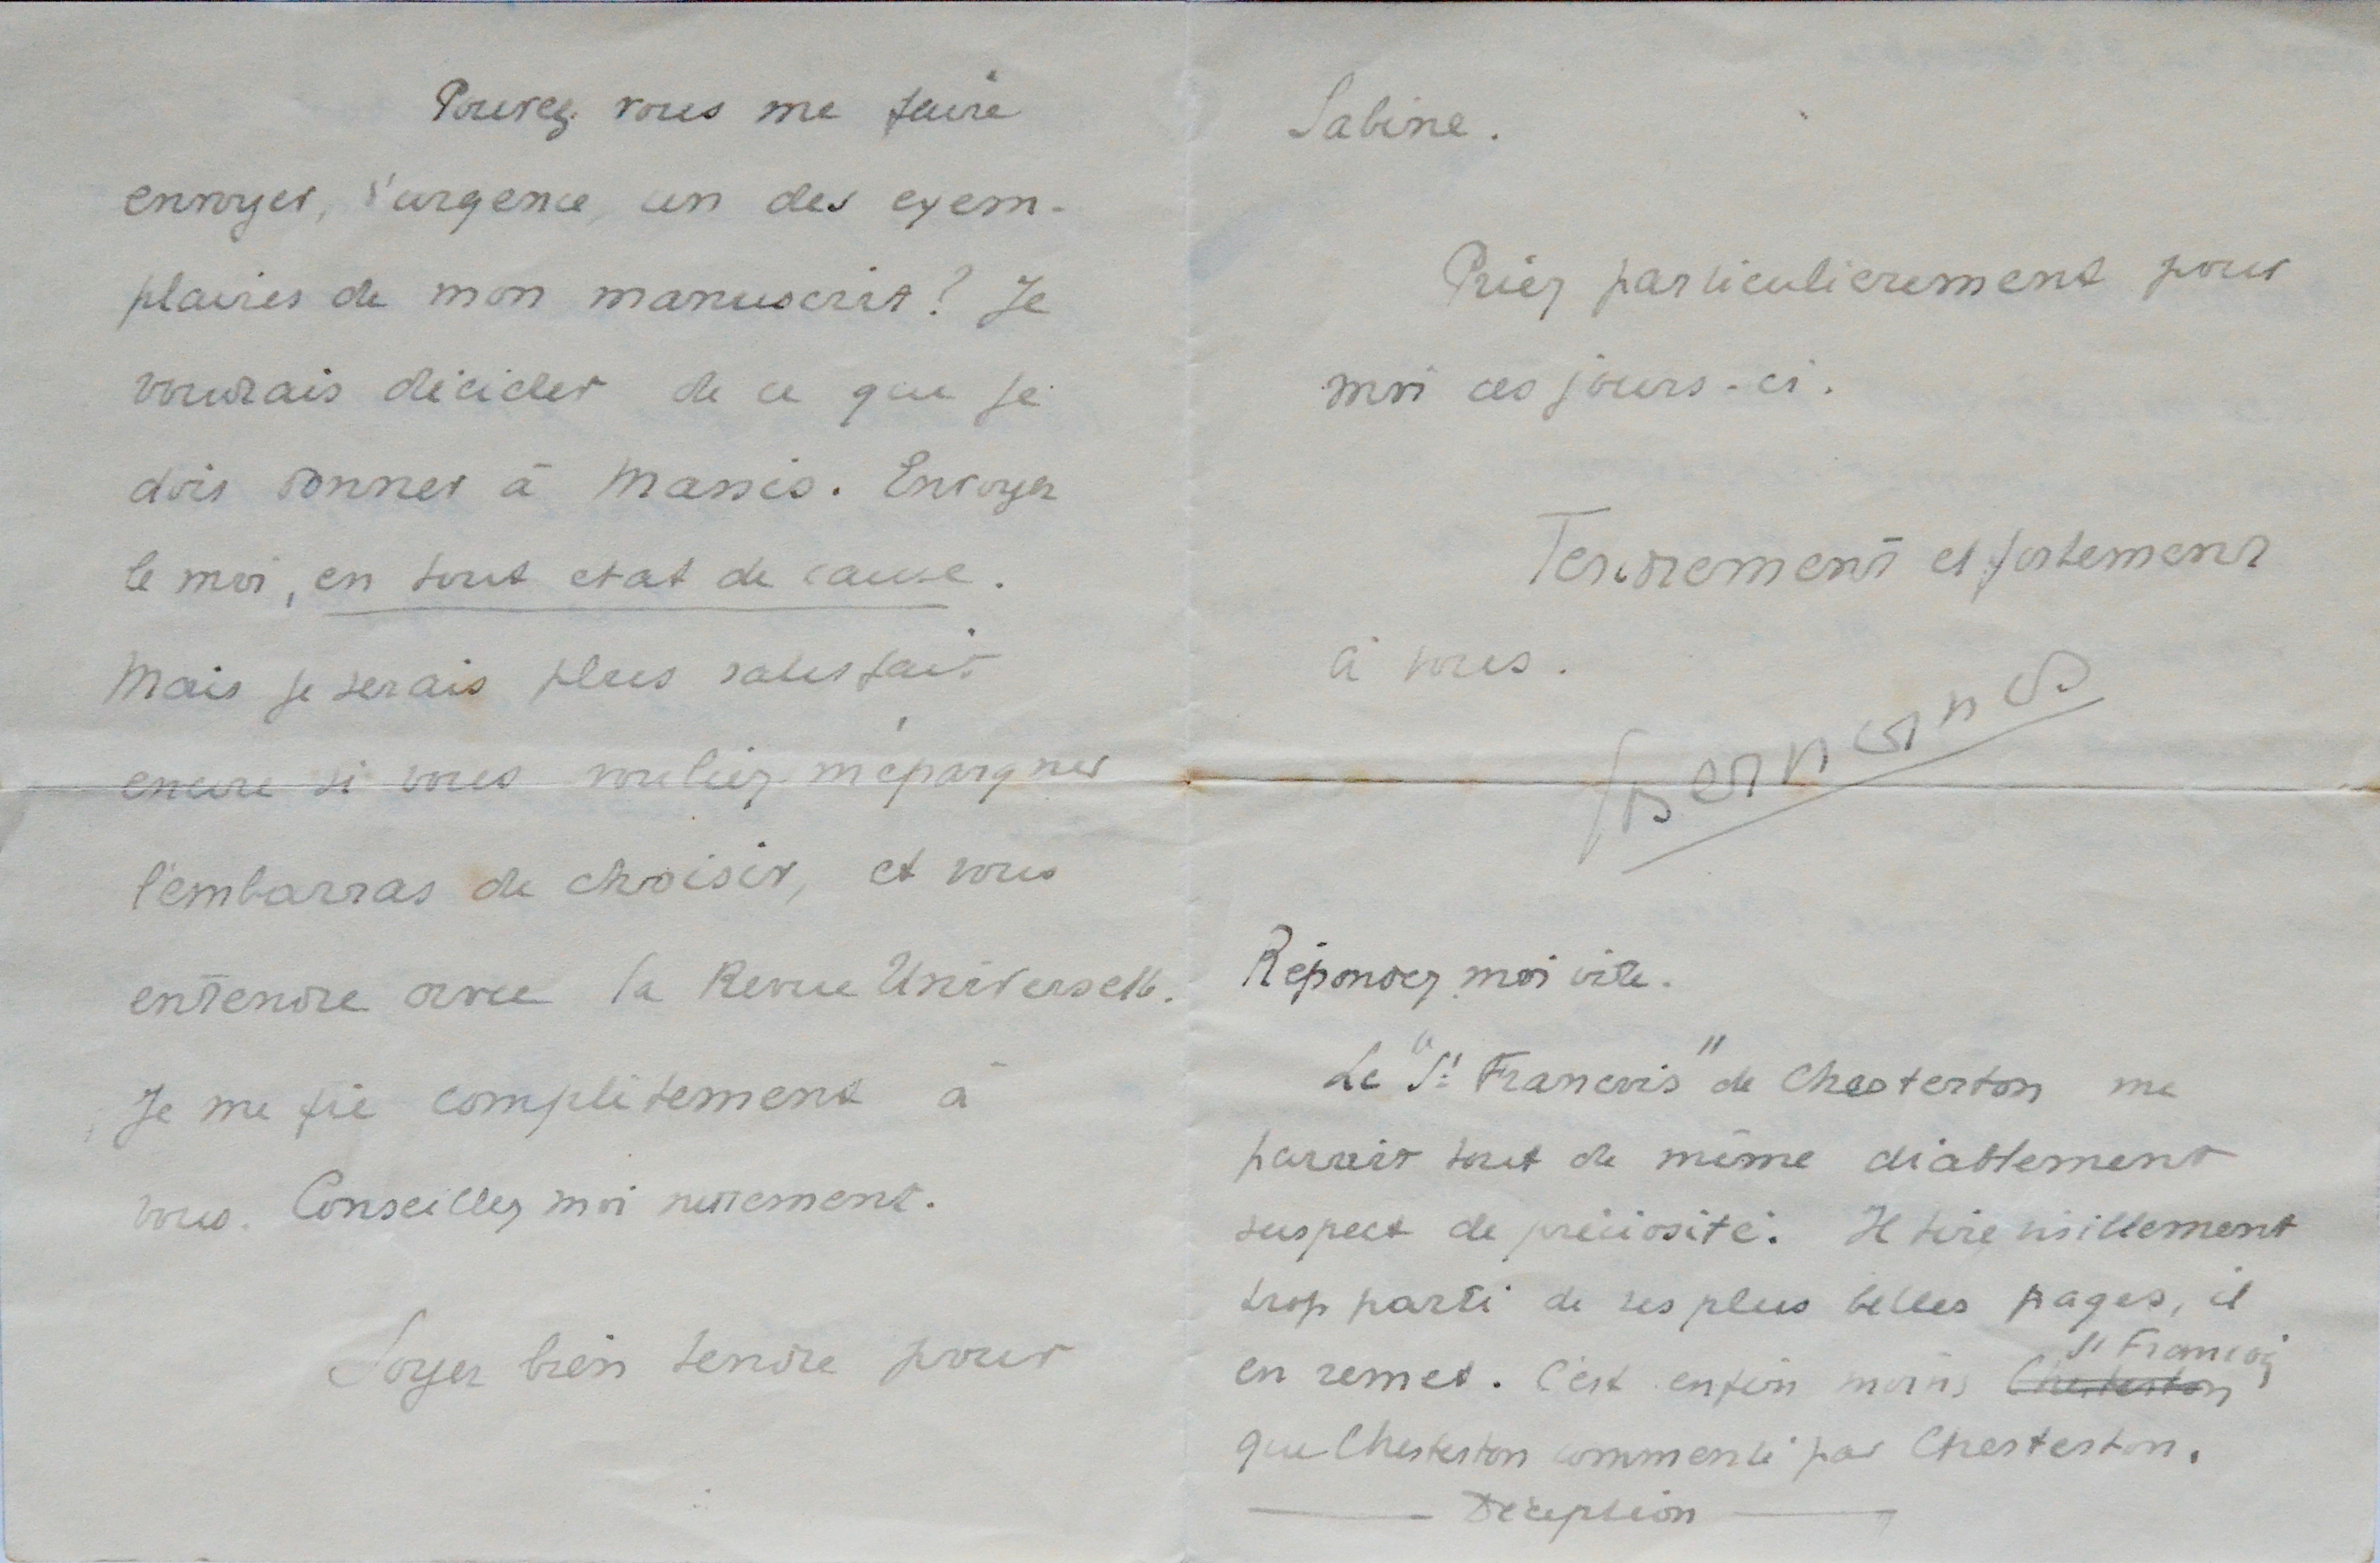 Pouvez vous me faire
envoyer, d'urgence, un des exem-
plaires de mon manuscrit ? Je
voudrais décider de ce que je
dois donner à Massis. Envoyez
le moi, en tout etat de cause.
Mais je serais plus satisfait
encore si vous vouliez m'épargner
l'embarras de choisir, et vous
entendre avec la Revue Universelle.
Je me fie complètement à
vous. Conseillez moi nettement.
Soyez bien tendre pour
Sabine.
Priez particulierement pour
moi ces jours-ci.
Tendrement et fortement
à vous.
Bernanos
Répondez moi vite.
Le "St François" de Chesterton me
parait tout de même diablement
suspect de préciosité. Il tire visiblement
trop parti de ses plus belles pages, il
en remet. C'est enfin moins Chesterton St François
que Chesterton commenté par Chesterton.
— Déception —